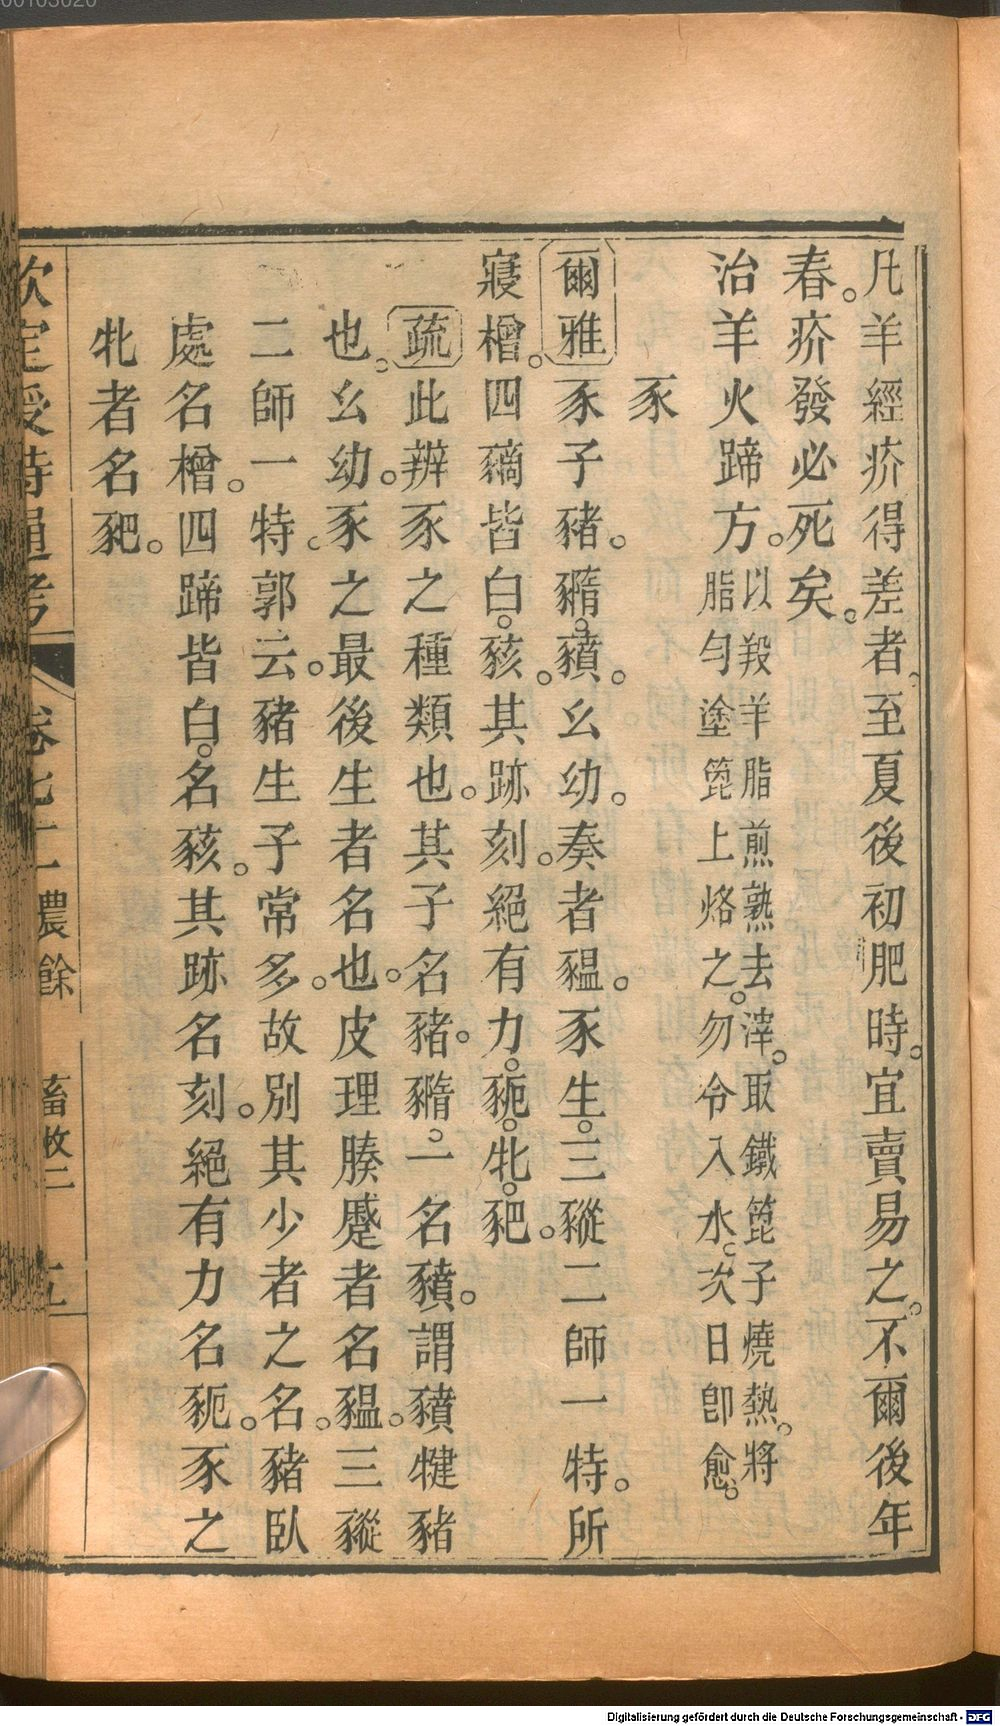 凡羊經疥得差者。至夏後初肥時。宜賣易之。不爾後年
春。疥發必死矣。
治羊火蹄方。以羖羊脂煎熟去滓。取鐵篦子燒熱。將
脂勻塗篦上烙之。勿令入水。次日卽愈。
豕
爾雅 豕子豬。䝐。豶。幺幼。奏者豱。豕生。三豵二師一特。所
寢橧。四豴皆白。豥。其跡刻。絕有力。豟。牝。豝。
疏 此辨豕之種類也。其子名豬。䝐。一名豶。謂豶犍豬
也。幺幼。豕之最後生者名也。皮理腠蹙者名豱。三豵
二師一特。郭云。豬生子常多。故別其少者之名。豬臥
處名橧。四蹄皆白。名豥。其跡名刻。絕有力名豟。豕之
牝者名豝。
欽定授時通考 卷七十二農餘 畜牧二
00103020
Digitalisierung gefördert durch die Deutsche Forschungsgemeinschaft - DFG